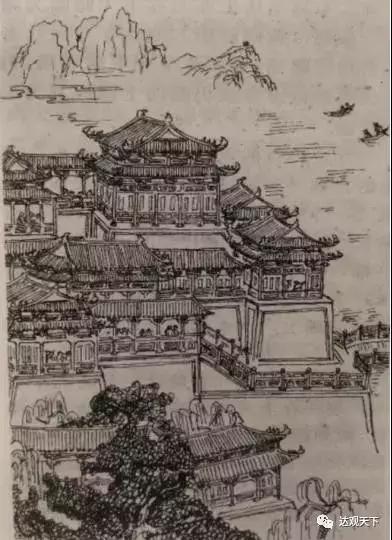 达观天下